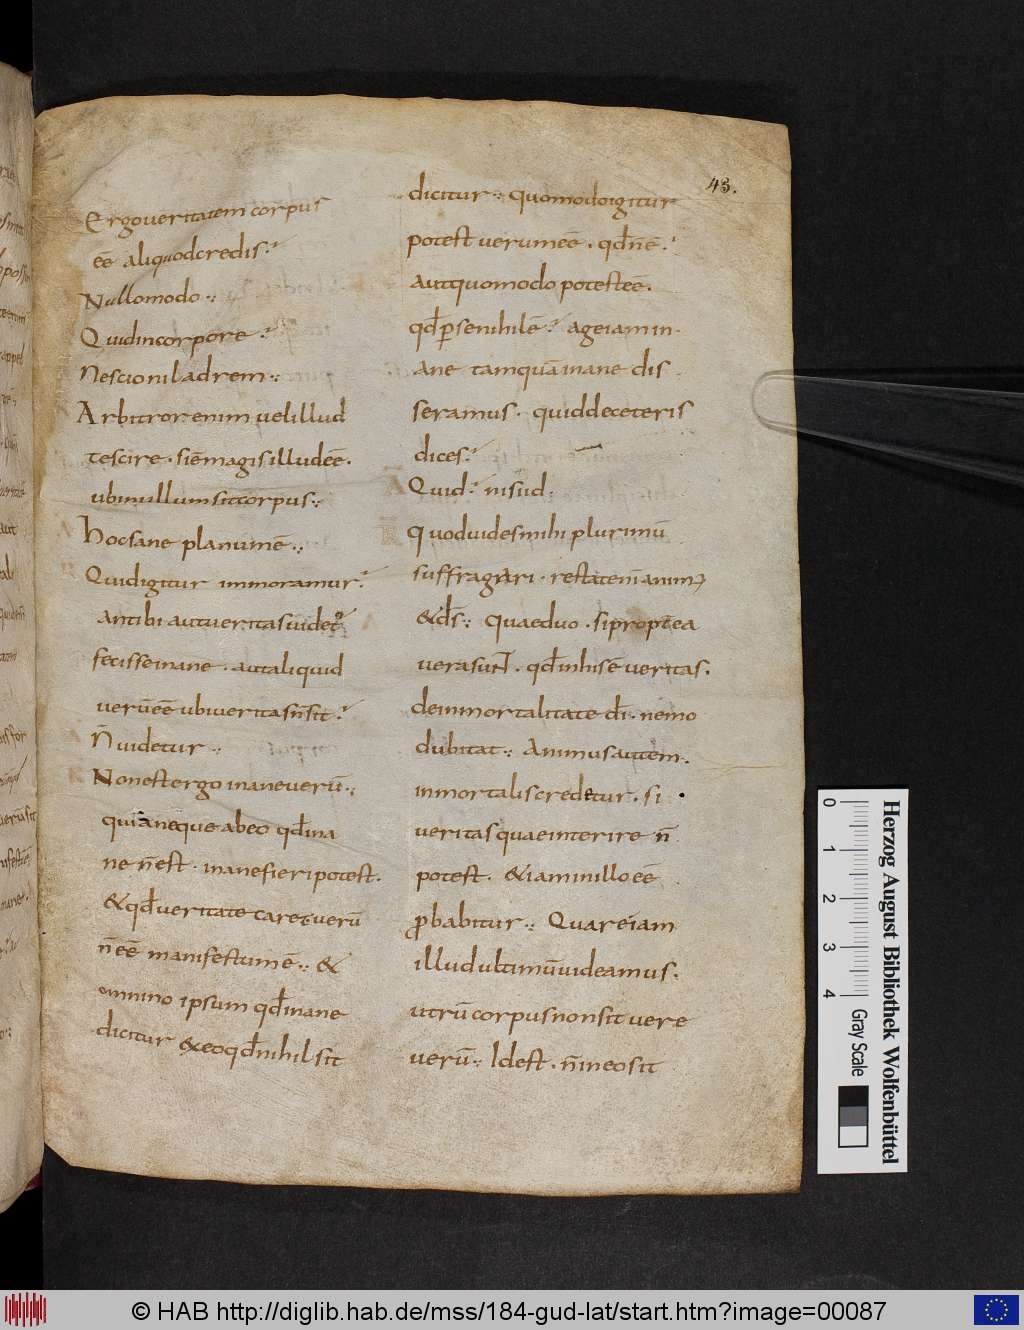 43.
Ergo veritatem corpus
eē aliquod credis?
Nullo modo:
Quid in corpore?
Nescio nil ad rem:
Arbitror enim vel illud
te scire. si ē magis illud eē.
ubi nullum sit corpus:
Hoc sane planum ē:
Quid igitur immoramur?
an tibi aut veritas videt᷑
fecisse inane. aut aliquid
verū eē ubi veritas n̄ sit?
N̄ videtur:
Non est ergo inane verū:
quia neque ab eo qđ ina
ne n̄ est. inane fieri potest.
& qđ veritate caret verū
n̄ eē manifestum ē: &
omnino ipsum qđ inane
dicitur & eo qđ nihil sit
dicitur: quomodo igitur
potest verum eē. qđ n̄ ē?
aut quomodo potest eē.
qđ ꝑse nihil ē? age iam in
ane tamquā inane dis
seramus. quid de ceteris
dices?
A Quid? nisi ud
R quod vides mihi plurimū
suffragari. restat enim anim;
& d̄s: quae duo. si propterea
vera sunt. qđ in his ē veritas.
de inmortalitate d̄i. nemo
dubitat: Animus autem.
inmortalis credetur. si
veritas quae interire n̄
potest. & iam in illo eē
ꝓbabitur: Quare iam
illud ultimū videamus.
utrū corpus non sit vere
verū: Id est. n̄ in eo sit
Herzog August Bibliothek Wolfenbüttel
Gray Scale
0 1 2 3 4
© HAB http://diglib.hab.de/mss/184-gud-lat/start.htm?image=00087